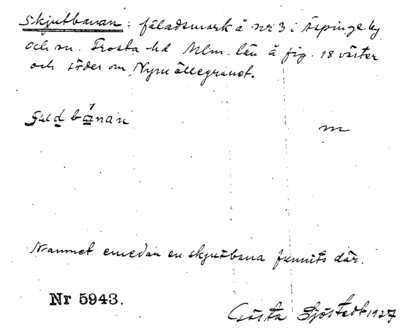 Skjutbanan: fäladsmark å nr 3 i Äspinge by
och sn. Frosta hd Mlm. län å fig. 18 väster
och söder om Nymöllegrinet.
m
Namnet emedan en skjutbana funnits där.
Nr 5943.
Gösta Sjöstedt 1927